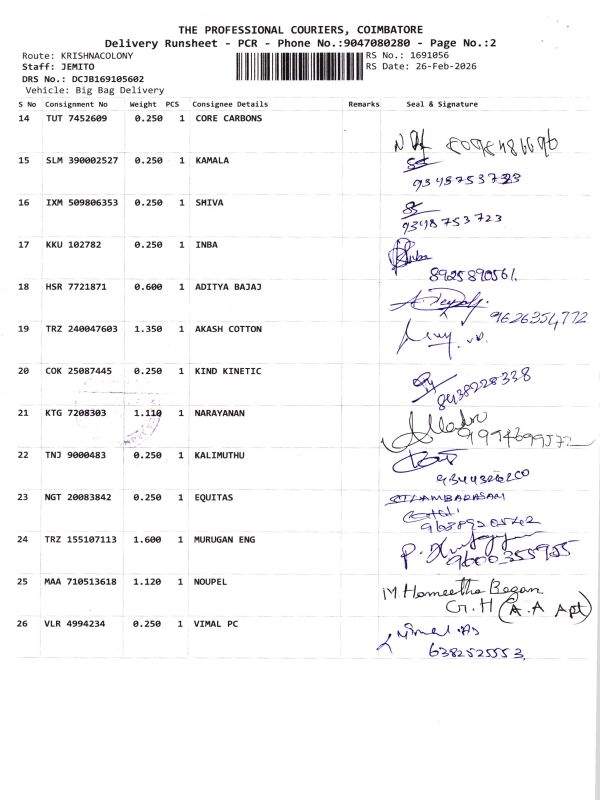 THE PROFESSIONAL COURIERS, COIMBATORE
Delivery Runsheet - PCR - Phone No.:9047080280 - Page No.:2
Route: KRISHNACOLONY RS No.: 1691056
Staff: JEMITO RS Date: 26-Feb-2026
DRS No.: DCJB169105602
Vehicle: Big Bag Delivery
S No Consignment No Weight PCS Consignee Details Remarks Seal & Signature
14 TUT 7452609 0.250 1 CORE CARBONS
15 SLM 390002527 0.250 1 KAMALA
9348753723
16 IXM 509806353 0.250 1 SMIVA
9348753723
17 KKU 102782 0.250 1 INBA
8925890561.
18 HSR 7721871 0.600 1 ADITYA BAJAJ
9626354772
19 TRZ 240047603 1.350 1 AKASH COTTON
20 COK 25087445 0.250 1 KIND KINETIC
8438228338
21 KTG 7208303 1.110 1 NARAYANAN
22 TNJ 9000483 0.250 1 KALIMUTHU
23 NGT 20083842 0.250 1 EQUITAS
24 TRZ 155107113 1.600 1 MURUGAN ENG
9600355955
25 MAA 710513618 1.120 1 NOUPEL
M. Hameetha Began
Gr. H (A.A Apt)
26 VLR 4994234 0.250 1 VIMAL PC
6382525553.